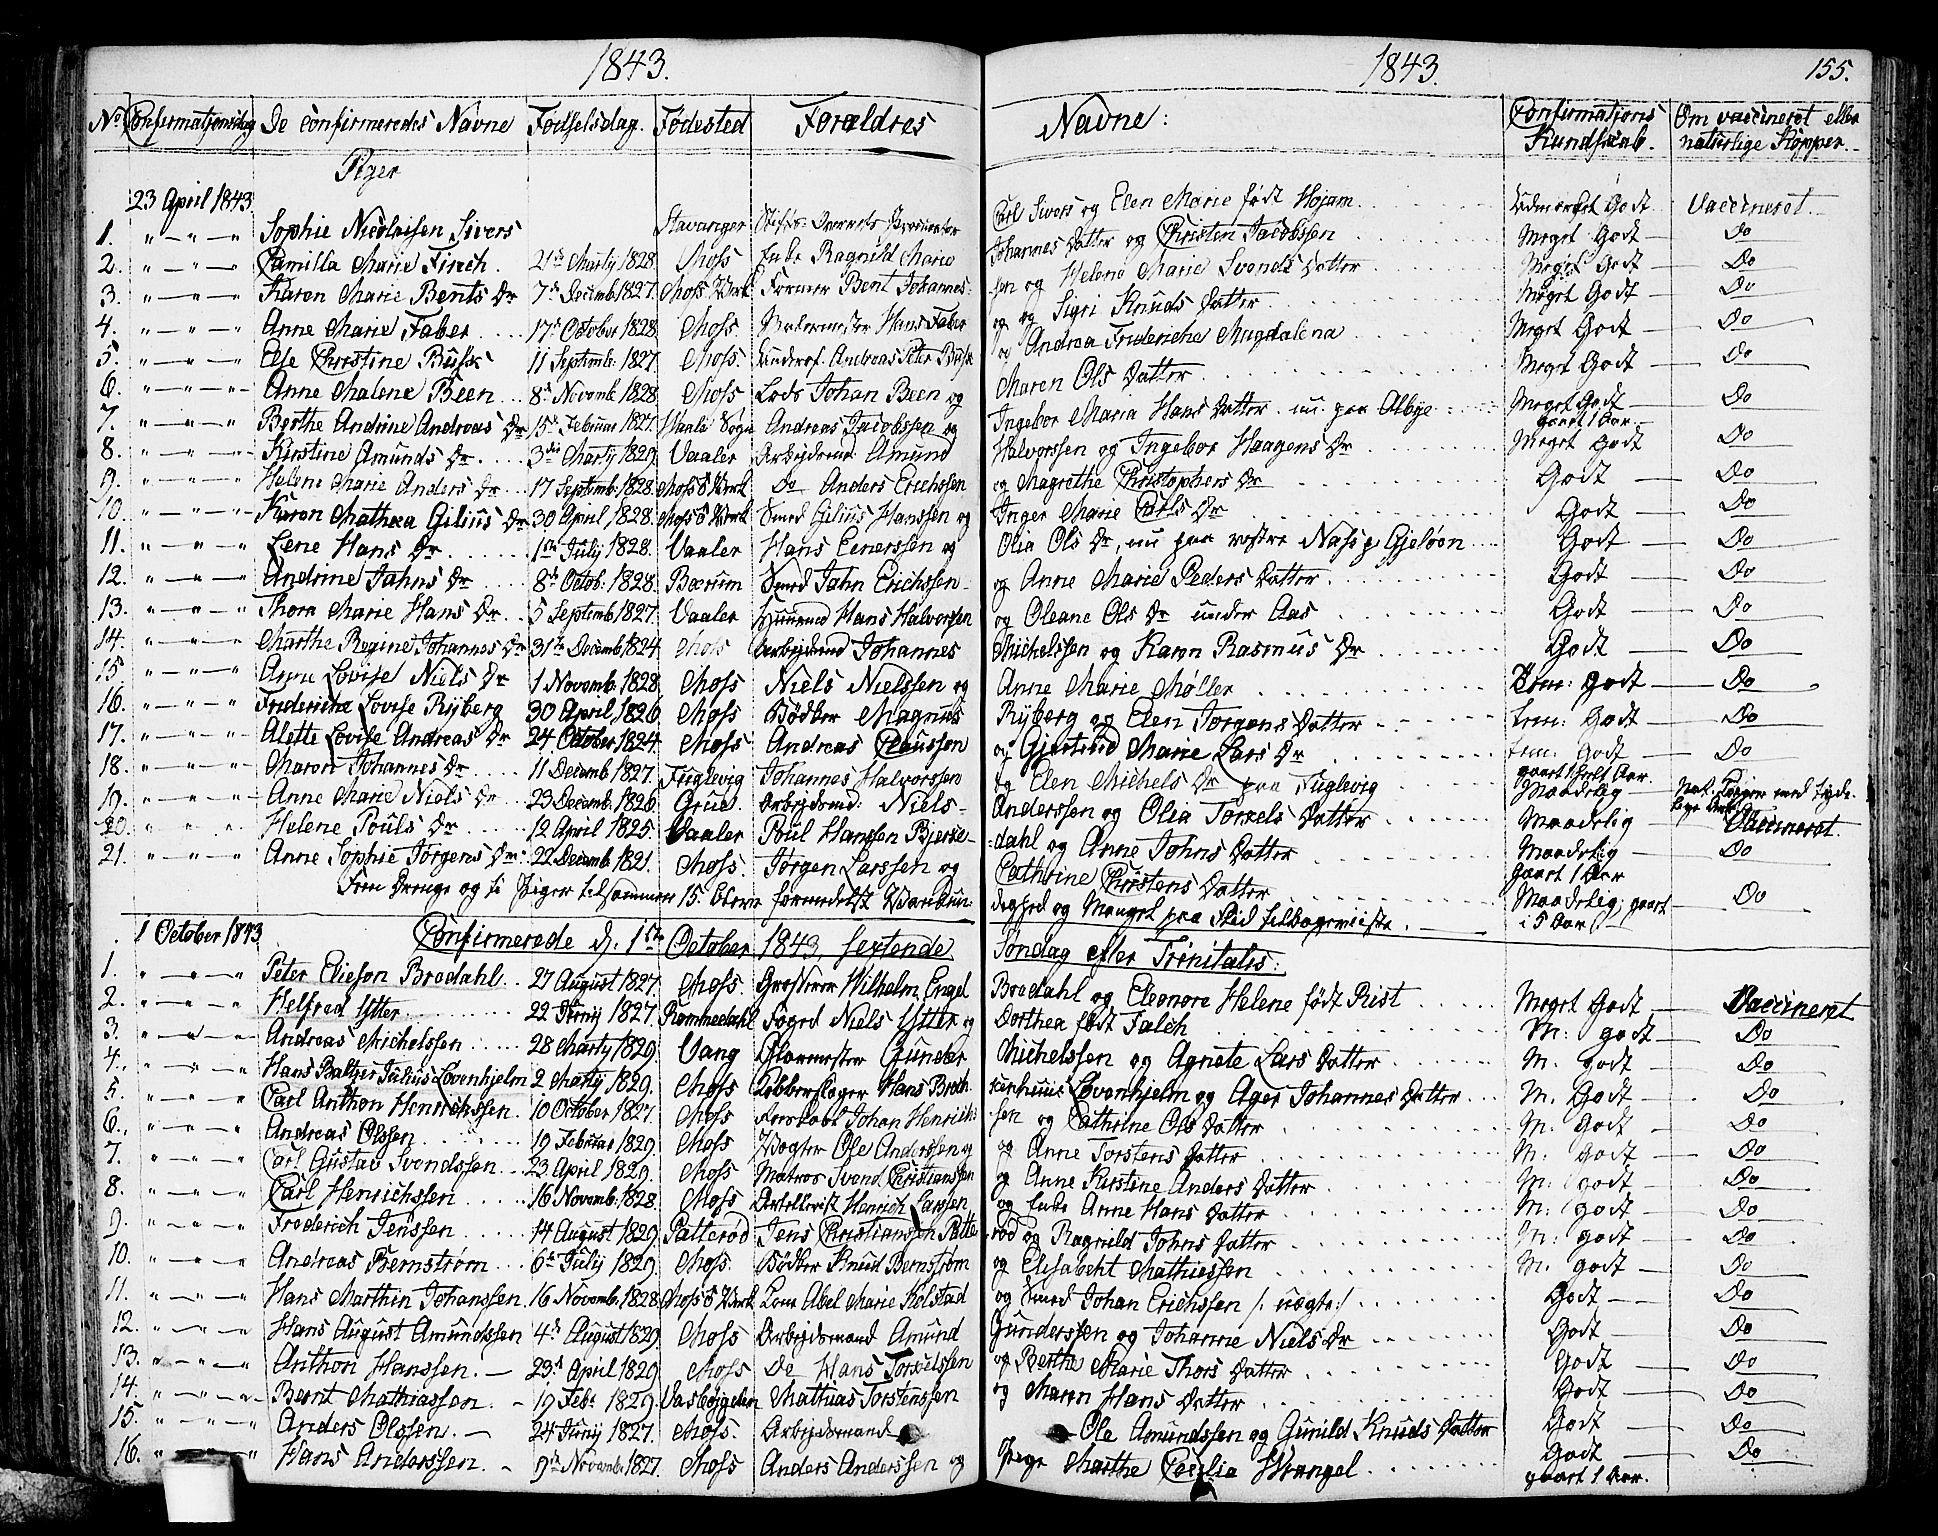 1843.
1843.
155.
No Confirmationsdag De Confirmeredes Navne Fødselsdag. Fødested Forældres Navne: Confirmations Kundskab. Om vaccineret eller naturlige Kopper.
Piger
23 April 1843
1. " — " — " Sophie Nicolaisen Sivers Stavanger Carl Sivers og Elen Marie født Hojam Udmærket Godt Vaccineret.
2. " — " — " Camilla Marie Firsch. 21de Martij 1828. Moss Enke Ragnild Marie Johannes Datter og Christen Jacobssen Meget Godt — Do
3. " — " — " Karen Marie Bents Dr 7de Decemb. 1827. Moss Værk Former Bent Johannes- sen og Helene Marie Svends Datter Meget Godt — Do
4. " — " — " Anne Marie Faber 17de October 1828. Moss Hans Faber og Sigri Knuds Datter Meget Godt — Do
5. " — " — " Else Christine Busk 11 Septemb. 1827. Moss. Underof. Andreas Peter Busk og Andrea Frideriche Magdalena Meget Godt — Do
6. " — " — " Anne Malene Been 8de Novemb. 1828 Moss Lods Johan Been og Maren Ols Datter Meget Godt — Do
7. " — " — " Berthe Andrine Andreas Dr 15de Februar 1827. Haale Sogn Andreas Jacobssen og Ingebor Maria Hans Datter. nu paa Albye Meget Godt gaaet 1 Aar. — Do
8. " — " — " Kirstine Amunds Dr. 3die Martij 1829. Vaaler Arbejdsmd. Amund Halvorssen og Ingebor Haagens Dr Meget Godt Do
9. " — " — " Helene Marie Anders Dr 17 Septemb. 1828. Moss Værk Do Anders Erichssen og Magrethe Christophers Dr Godt — Do
10. " — " — " Karen Mathea Gilius Dr 30 April 1828. Moss Værk Smed Gilius Hanssen og Inger Marie Carls Dr Godt — Do
11. " — " — " Lene Hans Dr 1ste Julij 1828. Vaaler Hans Enerssen og Olia Ols Dr, nu paa vestre Nass p Gjeløen Godt — Do
12. " — " — " Andrine Jahns Dr 8de Octob. 1828. Bærum Smed Jahn Erichssen og Anne Marie Peders Datter Godt — Do
13. " — " — " Thora Marie Hans Dr 5 Septemb. 1827. Vaaler Huusmd Hans Halvorssen og Oleane Ols Dr under Aas Godt — Do
14. " — " — " Marthe Regine Johannes Dr 31te Decemb. 1824. Moss Arbejdsmd Johannes Michelssen og Karen Rasmus Dr Godt — Do
15 " — " — " Anne Lovise Niels Dr 1 Novemb. 1828. Moss Niels Nielssen og Anne Marie Møller Tem: godt — Do
16. " — " — " Friderikke Lovise Ryberg 30 April, 1826 Moss Bødker Magnus Ryberg og Elen Jørgens Datter Tem: Godt — Do
17. " — " — " Alette Lovise Andreas Dr 24 October 1824. Moss. Andreas Claussen og Gjertrud Marie Lars Dr Tem: Godt — Do
18. " — " — " Maren Johannes Dr 11 Decemb. 1827. Fuglevig Johannes Halvorssen og Elen Michels Dr paa Fuglevig gaaet 1 halvt Aar. Maadelig
19. " — " — " Anne Marie Niels Dr 23 Decemb. 1826 Grue Arbejdsmd: Niels Anderssen og Olia Torkels Datter Maadelig — Vaccineret.
20. " — " — " Helene Pouls Dr 12 April 1825. Vaaler Poul Hanssen Bjerke- dahl og Anne Johns Datter Maadelig gaaet 1 Aar — Do
21. " — " — " Anne Sophie Jørgens Dr: 22 Decemb. 1821. Moss. Jørgen Larssen og Cathrine Christens Datter Maadelig, gaaet i 5 Aar — Do
Fem Drenge og ti Piger tilsammen 15. bleve formedelst Vankun- dighed og Mangel paa Flid tilbageviiste.
1 October 1843 Confirmerede d. 1ste October 1843, sextende Søndag efter Trinitatis:
1. " — " — " Peter Elieson Brodahl 27 August 1827. Moss. Grosserer Wilhelm Engel Brodahl og Eleonore Helene født Rist Meget Godt — Vaccineret
2. " — " — " Helfred Ytter 22 Junij 1827. Rommedahl Foged Niels Ytter og Dorthea født Falch M: godt — Do
3. " — " — " Andreas Michelssen 28 Martij 1829. Vang Glarmester Gunder Michelssen og Agnete Lars Datter M. godt — Do
4. " — " — " Hans Baltzer Julius Løvenhjelm 2 Martij 1829. Moss Kobberslager Hans Broch- kenhuus Løvenhjelm og Ager Johannes Datter M. Godt — Do
5. " — " — " Carl Anthon Henrichssen. 10 October 1827. Moss Johan Henrichs- sen og Cathrine Ols Datter M. Godt — Do
6. " — " — " Andreas Olssen 19 Februar 1829. Moss Vægter Ole Anderssen og Anne Torstens Datter M: Godt — Do
7. " — " — " Carl Gustav Svendssen 23 April 1829. Moss Matros Svend Christianssen og Anne Kirstine Anders Datter M: godt — Do
8. " — " — " Carl Henrichssen 16 Novemb. 1828. Moss Artellerist Henrich Larssen og Enke Anne Hans Datter M: godt — Do
9. " — " — " Frederich Jenssen 14 August 1829. Patterød Jens Christianssen Patte- rød og Ragnild Johns Datter M: godt — Do
10. " — " — " Andreas Bernstrøm 6te Julij 1829. Moss. Bødker Knud Bernstrøm og Elisabeht Mathiessen M. godt — Do
11. " — " — " Hans Marthin Johanssen. 16 Novemb. 1828. Moss Værk Abel Marie Kolstad og Smed Johan Erichssen /: uægte :/ Godt — Do
12. " — " — " Hans August Amundssen 4de August 1829. Moss Arbejdsmand Amund Gunderssen og Johanne Niels Dr Godt — Do
13. " — " — " Anthon Hanssen. — 23de April 1829 Moss Do Hans Torkelssen og Berthe Marie Thors Datter Godt — Do
14. " — " — " Bernt Mathiassen. — 19 Febr. 1829. Mathias Torstenssen og Maren Hans Datter Godt — Do
15. " — " — " Anders Olssen. — 24 Junij 1827. Moss. Arbejdsmand Ole Amundssen og Gunild Knuds Datter Godt — Do
16. " — " — " Hans Anderssen. — 9de Novemb. 1827. Moss Anders Anderssen og Pige Marthe Cecilia Wrangel Godt gaaet 1 Aar. — Do